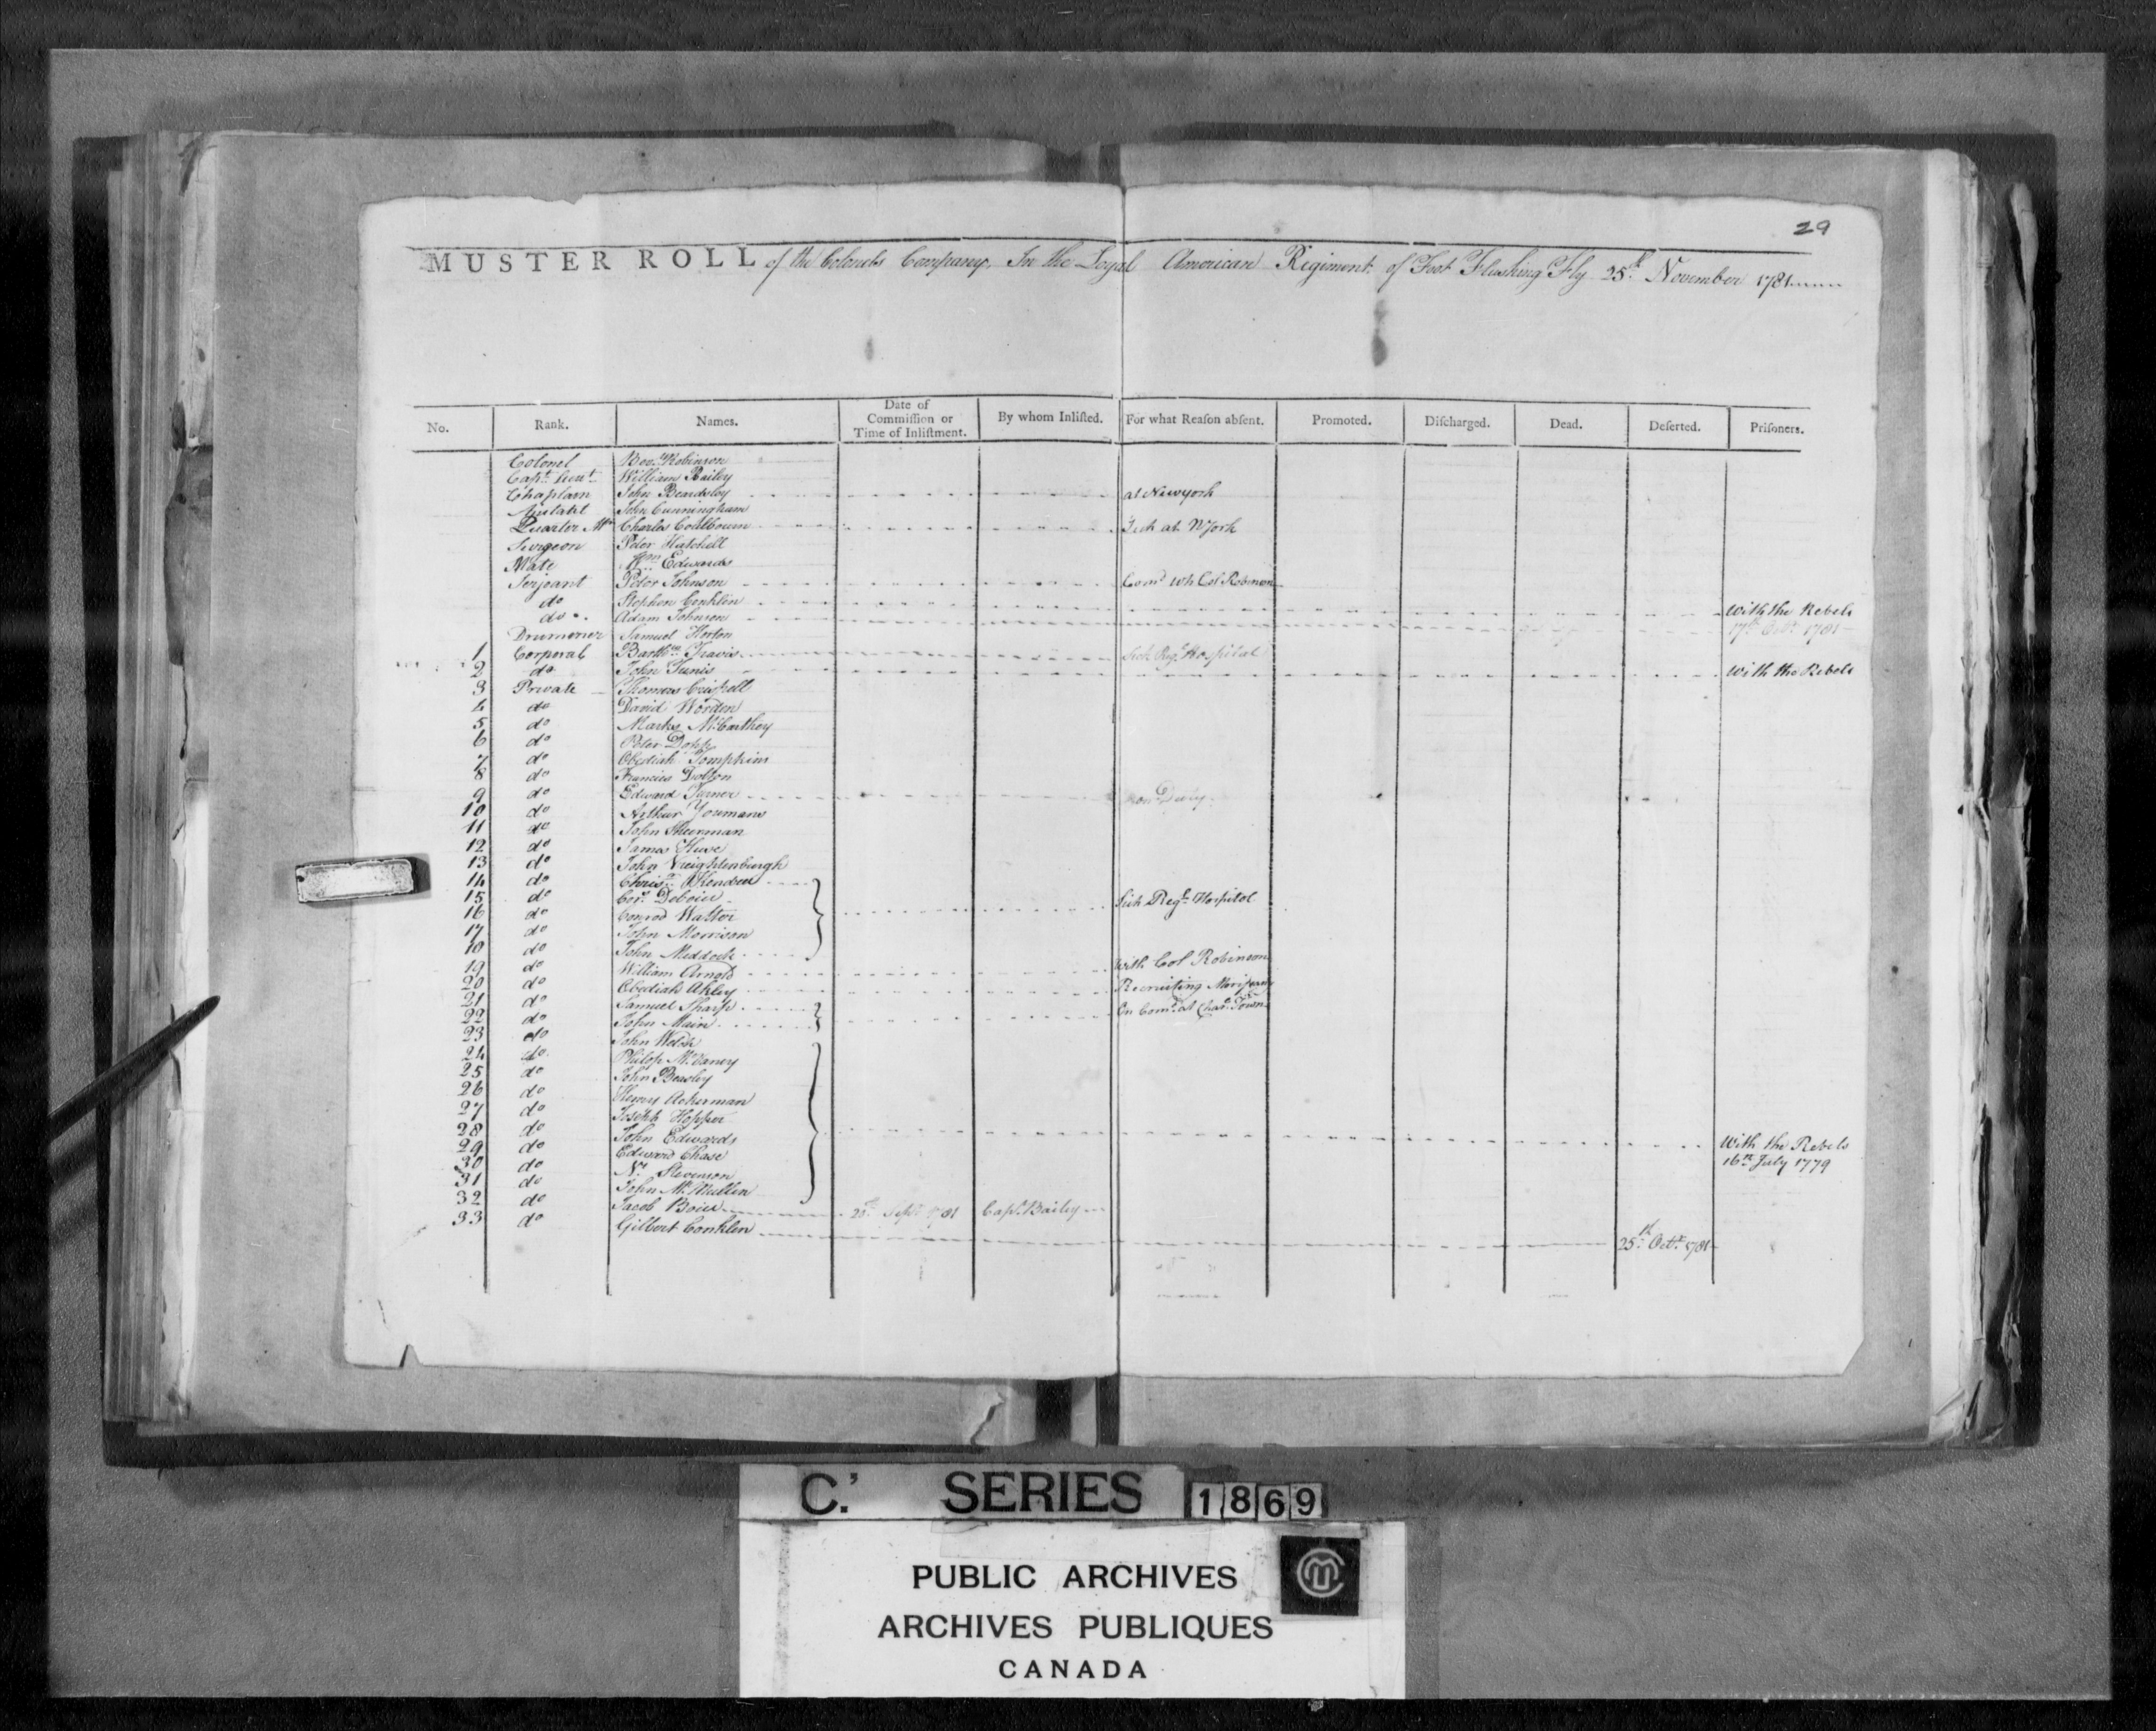 29
MUSTER ROLL of the Colonels Company. In the Loyal American Rigiment of Foot Flushing Fly 25th November 1781
No. Rank. Names. Date of Commiſſion or Time of Inliſtment. By whom Inliſted. For what Reaſon abſent. Promoted. Diſcharged. Dead. Deſerted. Priſoners.
Colonel Bev.y Robinson
Capt. Lieut. William Bailey
Chaplain John Beardsley at Newyork
Adjutant John Cunningham
Quarter Mr. Charles Coulbourn Sick at NYork
Surgeon Peter Hatchell
Mate Wm. Edwards
Serjeant Peter Johnson Comd. wh Col Robinson
do Stephen Conklin with the Rebels
do Adam Johnson 17th Octr. 1781
Drummer Samuel Horton
1 Corporal Barthw. Travis Sick Regl. Hospital
2 do John Tunis with the Rebels
3 Private Thomas Crispell
4 do David Worden
5 do Marks McCarthey
6 do Peter Dopp
7 do Obediah Tompkins
8 do Francies Dolton
9 do Edward Turner on Duty
10 do Arthur Youmans
11 do John Sheerman
12 do James Huse
13 do John Vreighlenburgh
14 do Chrisr.
15 do Cor. Deboice Sick Regl. Hospital
16 do Conrod Walter
17 do John Morrison
18 do John Middock
19 do William Arnold with Col Robinson
20 do Obediah Akley Recruiting
21 do Samuel Sharp On Comd. at Chas. Town
22 do John Main
23 do John Welsh
24 do Philip
25 do John Beasley
26 do Henry Ackerman
27 do Joseph Hopper
28 do John Edwards with the Rebels
29 do Edward Chase 16th July 1779
30 do Stevenson
31 do John McMullin
32 do Jacob Boice Sept. 1781 Capt. Bailey
33 do Gilbert Conklen 25th Octr. 1781
C.' SERIES 1869
PUBLIC ARCHIVES
ARCHIVES PUBLIQUES
CANADA